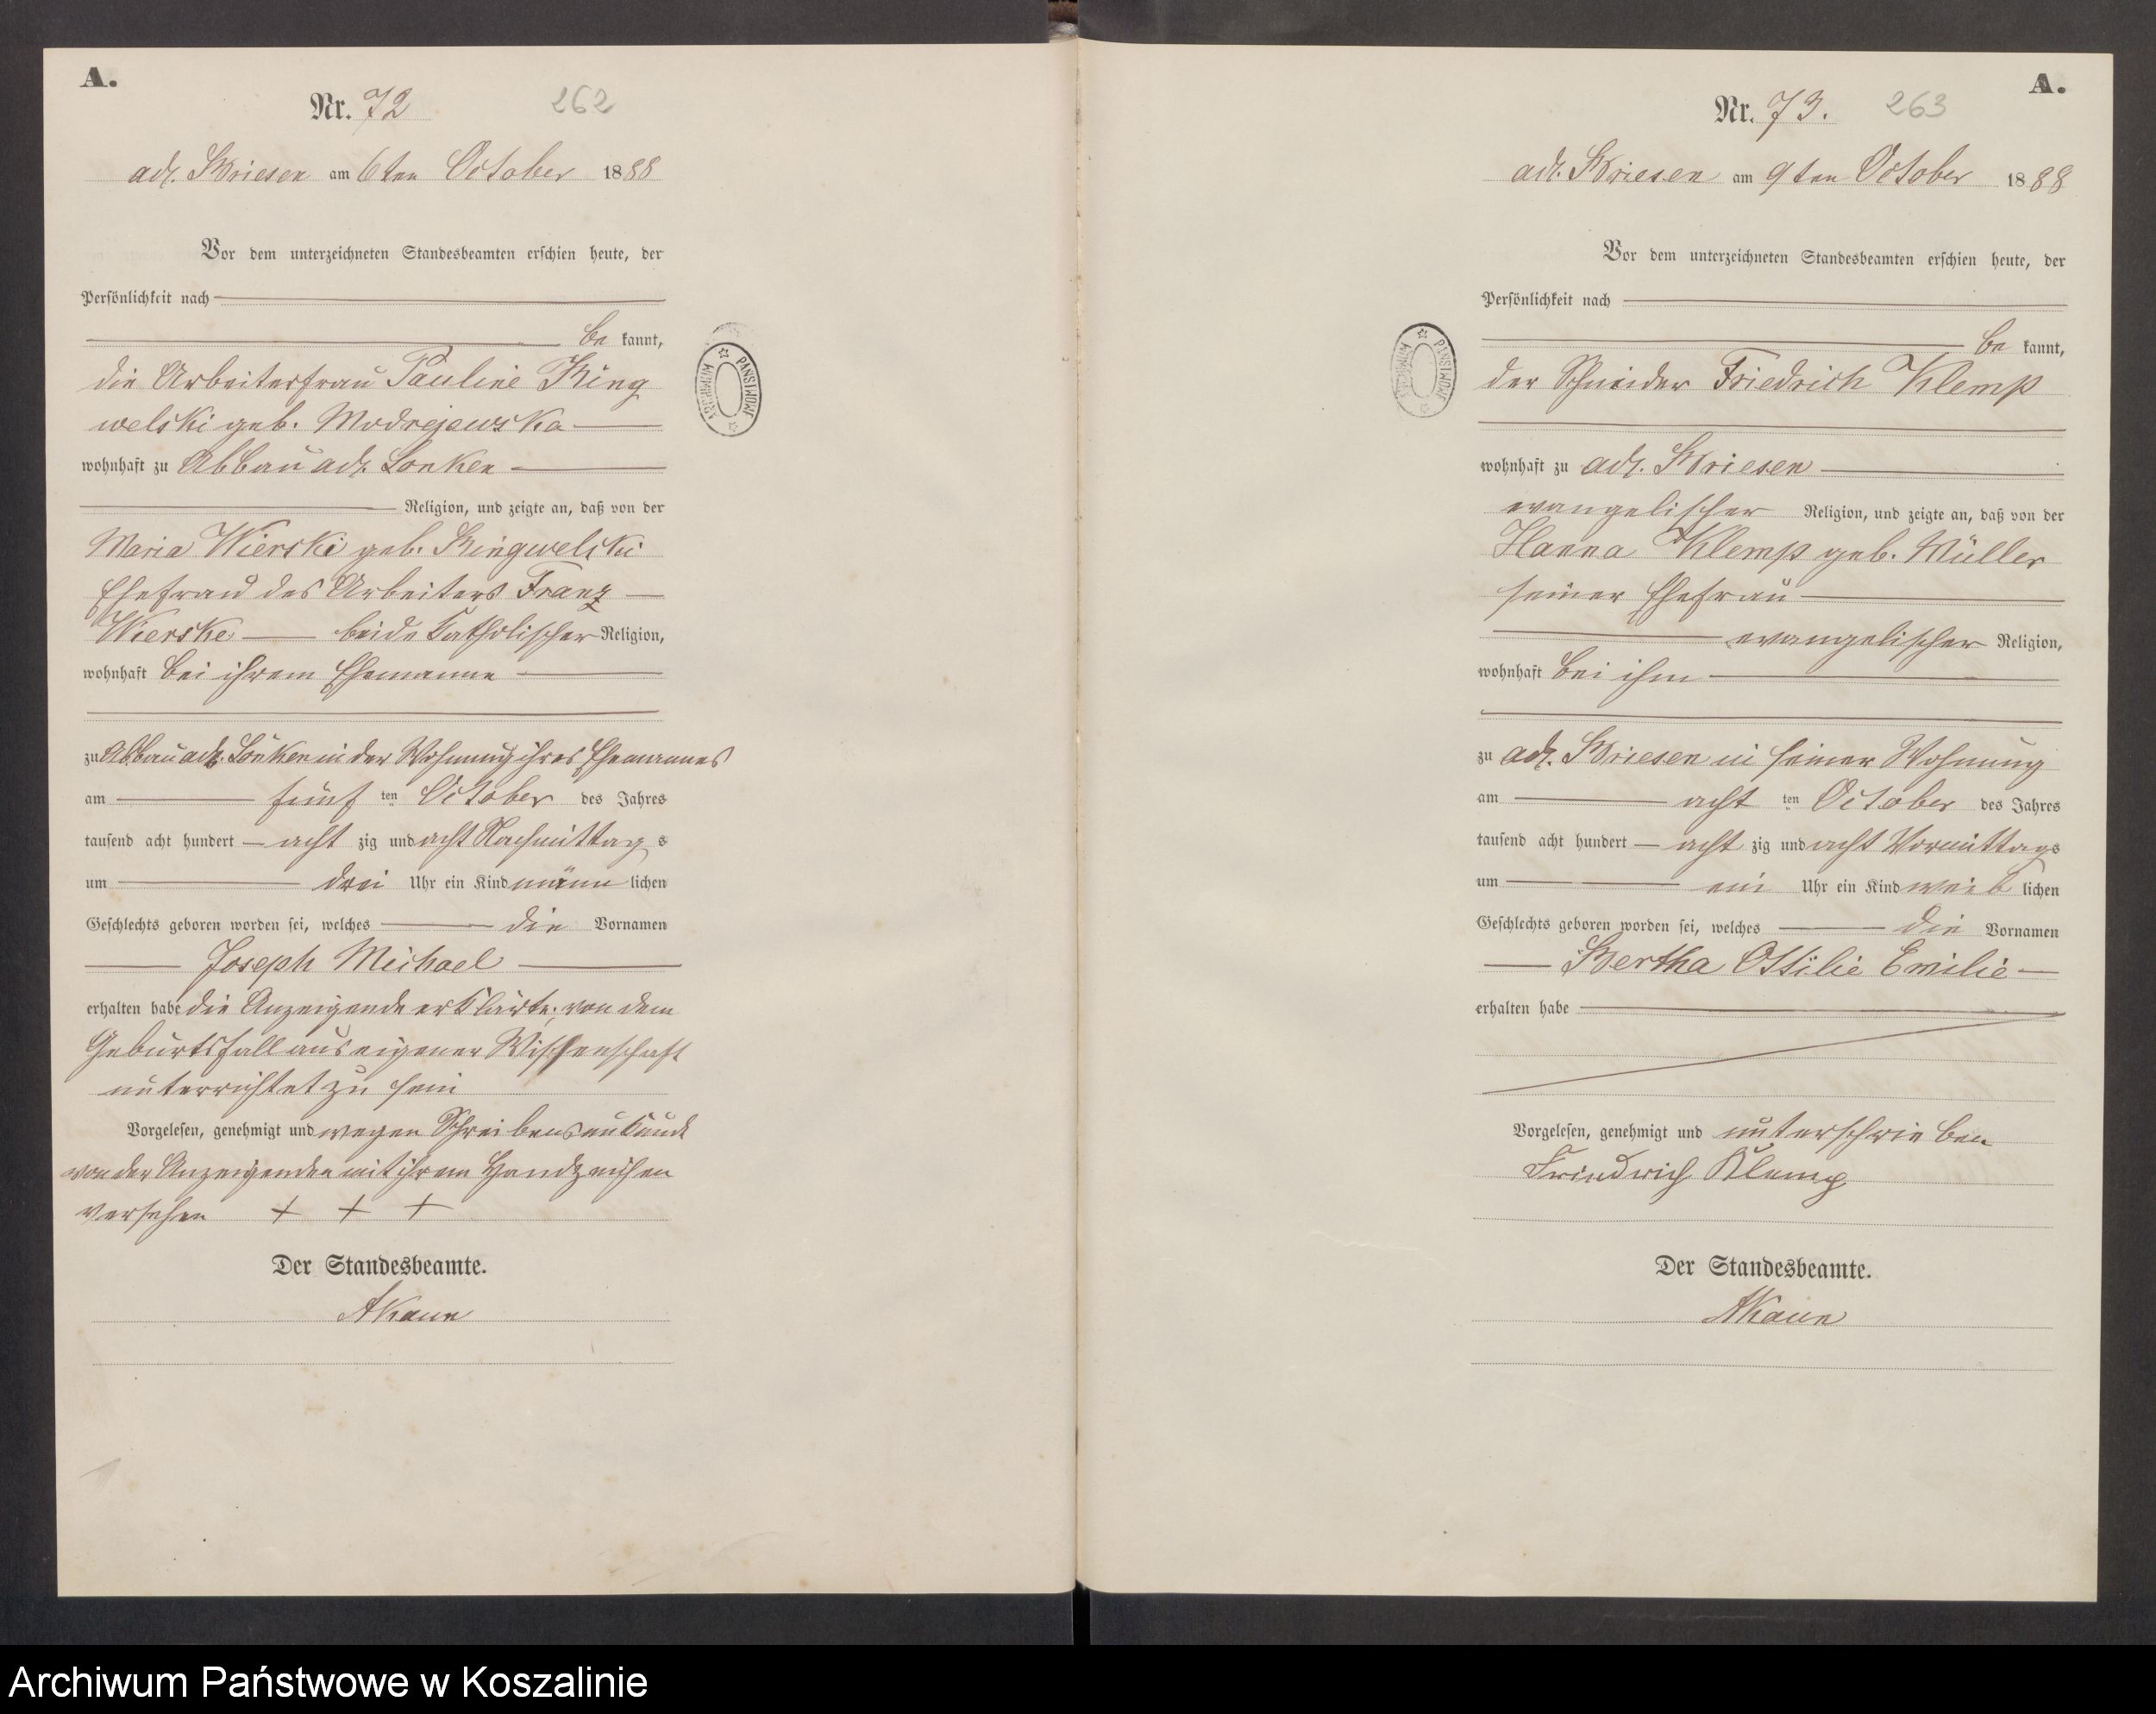 A.
Nr. 72 262
adl. Briesen am 6ten October 1888
Vor dem unterzeichneten Standesbeamten erschien heute, der
Persönlichkeit nach
be kannt,
die Arbeiterfrau Pauline Bing
welski geb. Modrejewska
wohnhaft zu Abbau adl. Lonken
Religion, und zeigte an, daß von der
Maria Wierski geb. Bingwelski
Ehefrau des Arbeiters Franz
Wierske beide katholischer Religion,
wohnhaft bei ihrem Ehemanne
zu Abbau adl. Lonken in der Wohnung ihres Ehemannes
am fünf ten October des Jahres
tausend acht hundert acht zig und acht Nachmittag s
um drei Uhr ein Kind männ lichen
Geschlechts geboren worden sei, welches die Vornamen
Joseph Michael
erhalten habe die Anzeigende erklärte, von dem
Geburtsfall aus eigener Wissenschaft
unterrichtet zu sein
Vorgelesen, genehmigt und wegen Schreibensunkunde
von der Anzeigenden mit ihrem Handzeichen
versehen + + +
Der Standesbeamte.
AKaun
ARCHIWUM PAŃSTWOWE
A.
Nr. 73. 263
adl. Briesen am 9ten October 1888
Vor dem unterzeichneten Standesbeamten erschien heute, der
Persönlichkeit nach
be kannt,
der Schneider Friedrich Klemp
wohnhaft zu adl. Briesen
evangelischer Religion, und zeigte an, daß von der
Hanna Klemp geb. Müller
seiner Ehefrau
evangelischer Religion,
wohnhaft bei ihm
zu adl. Briesen in seiner Wohnung
am acht ten October des Jahres
tausend acht hundert acht zig und acht Vormittags
um ein Uhr ein Kind weib lichen
Geschlechts geboren worden sei, welches die Vornamen
Bertha Ottilie Emilie
erhalten habe
Vorgelesen, genehmigt und unterschrieben
Friedrich Klemp
Der Standesbeamte.
AKaun
ARCHIWUM PAŃSTWOWE
Archiwum Państwowe w Koszalinie